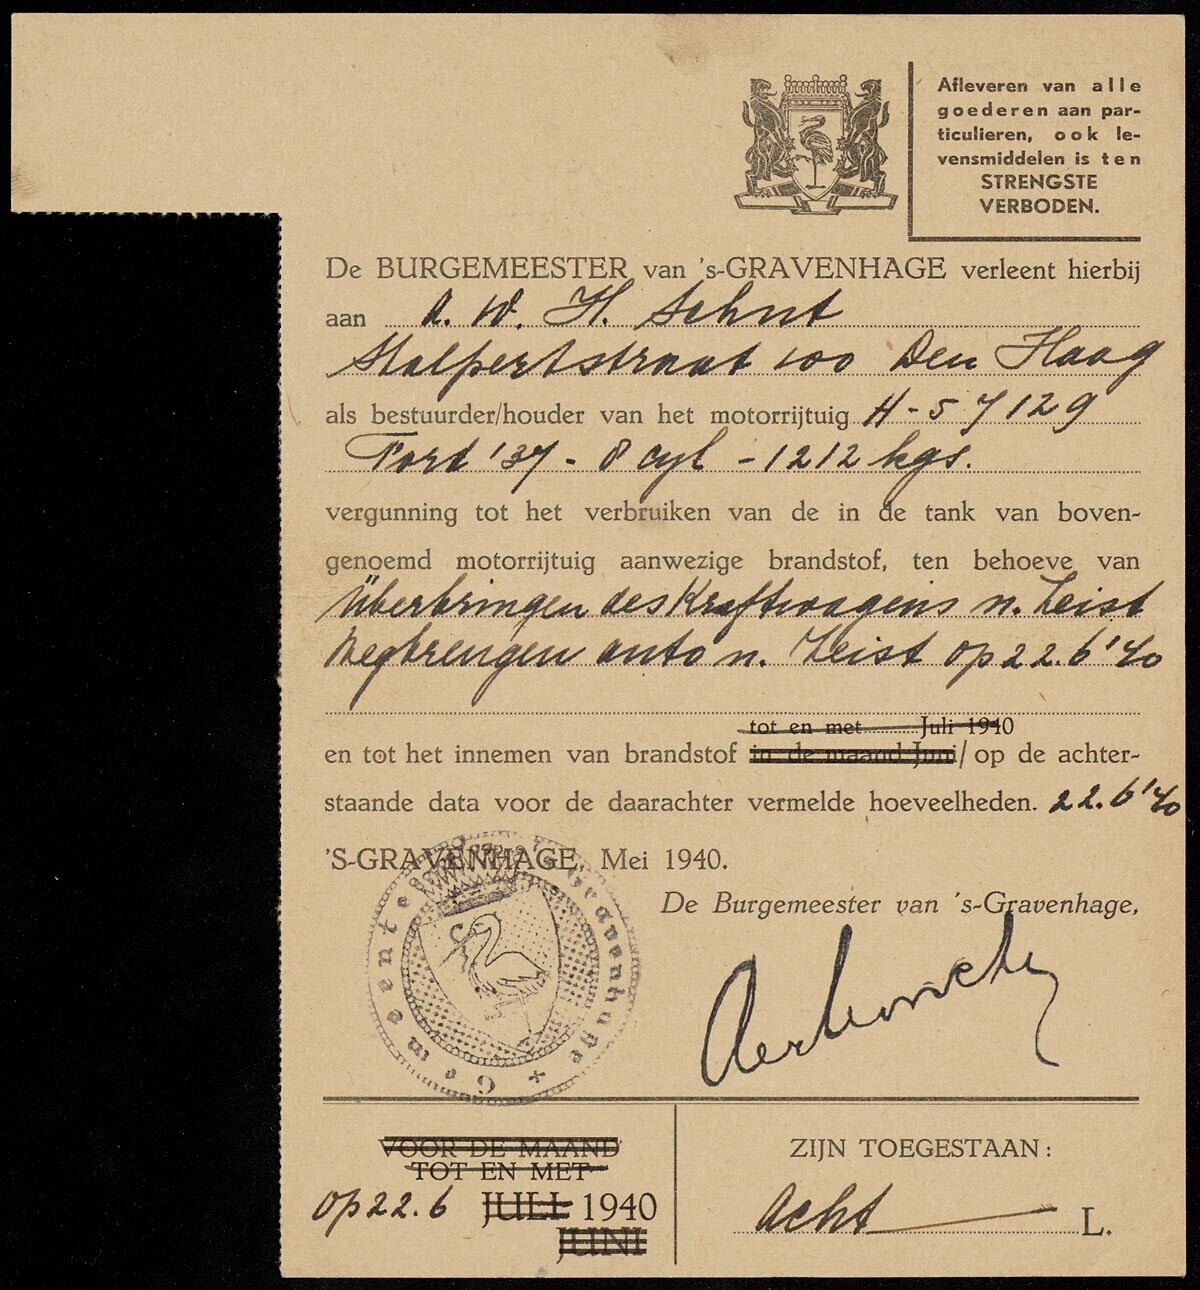 Afleveren van alle
goederen aan par-
ticulieren, ook le-
vensmiddelen is ten
STRENGSTE
VERBODEN.
De BURGEMEESTER van 's-GRAVENHAGE verleent hierbij
aan A. W. H. Schut
Stalpertstraat 100 Den Haag
als bestuurder/houder van het motorrijtuig H-57129
Ford '37 - 8 cyl - 1212 kgs.
vergunning tot het verbruiken van de in de tank van boven-
genoemd motorrijtuig aanwezige brandstof, ten behoeve van
Überbringen des Kraftwagens n. Zeist
Wegbrengen auto n. Zeist op 22.6'40
tot en met Juli 1940
en tot het innemen van brandstof in de maand Juni/ op de achter-
staande data voor de daarachter vermelde hoeveelheden. 22.6'40
'S-GRAVENHAGE, Mei 1940.
De Burgemeester van 's-Gravenhage,
Gemeente 's Gravenhage
VOOR DE MAAND
TOT EN MET
op 22.6 JULI 1940
JUNI
ZIJN TOEGESTAAN:
Acht L.